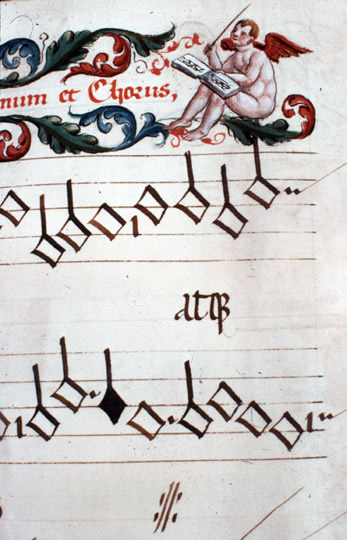 num et Chorus,
atq3